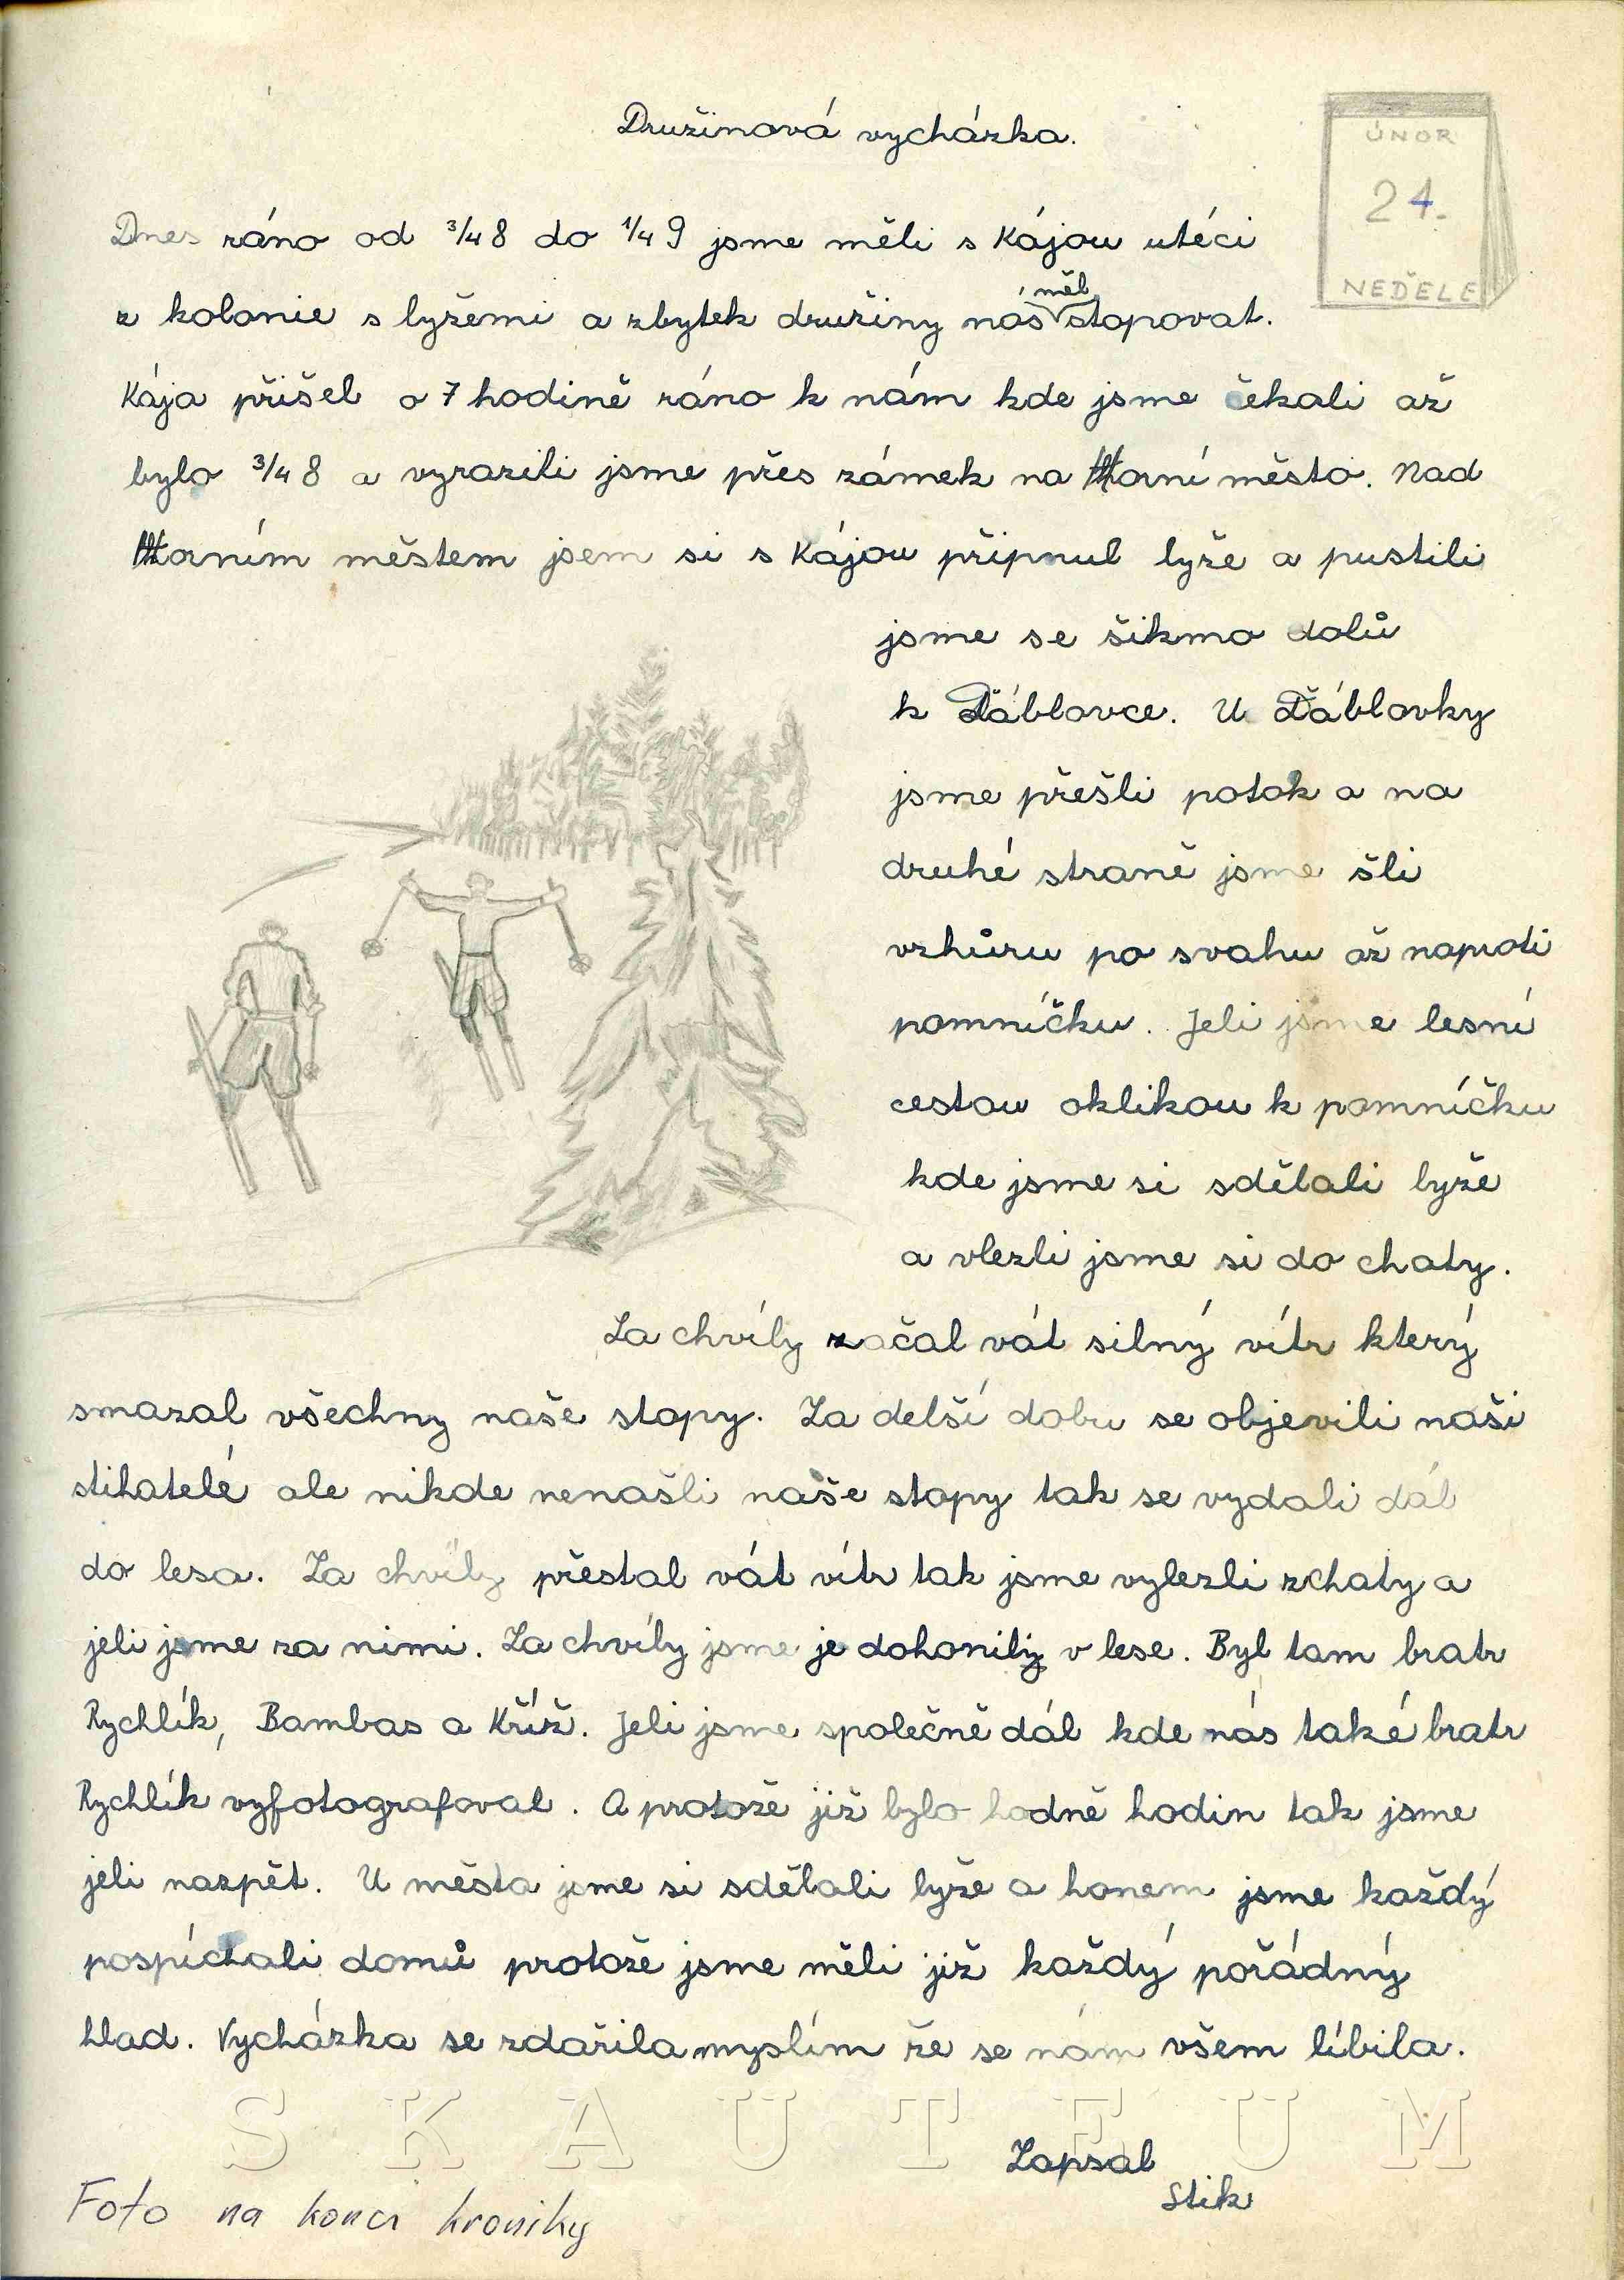 Družinová vycházka.
ÚNOR
24.
NEDĚLE
Dnes ráno od 3/4 8 do 1/4 9 jsme měli s Kájou utéci
z kolonie s lyžemi a zbytek družiny nás měl stopovat.
Kája přišel o 7 hodině ráno k nám kde jsme čekali až
bylo 3/4 8 a vyrazili jsme přes zámek na Horní město. Nad
Horním městem jsem si s Kájou připnul lyže a pustili
jsme se šikmo dolů
k Ďáblovce. U Ďáblovky
jsme přešli potok a na
druhé straně jsme šli
vzhůru po svahu až naproti
pomníčku. Jeli jsme lesní
cestou oklikou k pomníčku
kde jsme si sdělali lyže
a vlezli jsme si do chaty.
Za chvíly začal vát silný vítr který
smazal všechny naše stopy. Za delší dobu se objevili naši
stihatelé ale nikde nenašli naše stopy tak se vydali dál
do lesa. Za chvíly přestal vát vítr tak jsme vylezli z chaty a
jeli jsme za nimi. Za chvíly jsme je dohonily v lese. Byl tam bratr
Rychlík, Bambas a Kříž. Jeli jsme společně dál kde nás také bratr
Rychlík vyfotografoval. A protože již bylo hodně hodin tak jsme
jeli nazpět. U města jsme si sdělali lyže a honem jsme každý
pospíchali domů protože jsme měli již každý pořádný
hlad. Vycházka se zdařila myslím že se nám všem líbila.
SKAUTEUM
Zapsal
Stik
Foto na konci kroniky